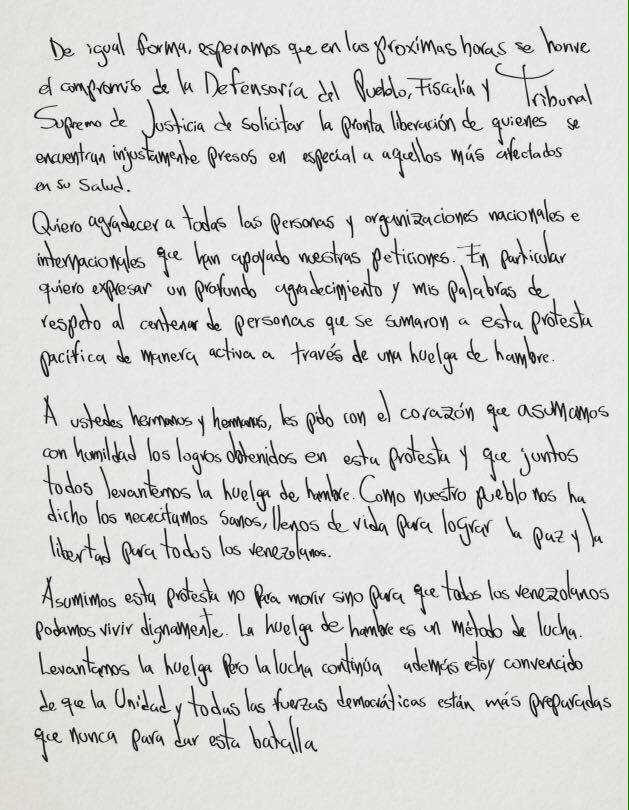 De igual forma, esperamos que en las proximas horas se honre
el compromiso de la Defensoría del Pueblo, Fiscalía y Tribunal
Supremo de Justicia de solicitar la pronta liberación de quienes se
encuentran injustamente presos en especial a aquellos más afectados
en su salud.
Quiero agradecer a todas las personas y organizaciones nacionales e
internacionales que han apoyado nuestras peticiones. En particular
quiero expresar un profundo agradecimiento y mis palabras de
respeto al centenar de personas que se sumaron a esta protesta
pacífica de manera activa a través de una huelga de hambre.
A ustedes hermanos y hermanas, les pido con el corazón que asumamos
con humildad los logros obtenidos en esta protesta y que juntos
todos levantemos la huelga de hambre. Como nuestro pueblo nos ha
dicho los nececitamos sanos, llenos de vida para lograr la paz y la
libertad para todos los venezolanos.
Asumimos esta protesta no para morir sino para que todos los venezolanos
podamos vivir dignamente. La huelga de hambre es un método de lucha.
Levantamos la huelga pero la lucha continúa además estoy convencido
de que la Unidad y todas las fuerzas democráticas están más preparadas
que nunca para dar esta batalla